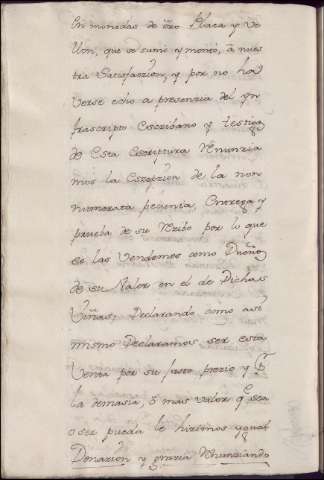 En monedas de oro Plata y Ve
llon, que se sumó y montó, á nues
tra Satisfaczion, y por no hav
verse echo a presenzia del yn
frascripto Escribano y testigos
de Esta Escriptura Renunzia
mos la Esepzion de la non
numerata pecunia, Entrega y
prueba de su Rezivo por lo que
se las Vendemos como Dueños
de su Valor en el de Dichas
Viñas, Declarando como assi
mismo Declaramos ser esta
Venta por su justo prezio y
la demasia, ó mas valor q sea
o ser pueda le hizimos ygual
Donazion y grazia Renunziando